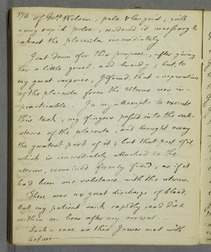 178 of Mrs. Wilson, pale & languid, with
a very rapid pulse, rendered it necessary to
extract the placenta immediately.
I sat down for this purpose, after giving
her a little gruel, and brandy; but to
my great surprise, I found that a separation
of the placenta from the uterus was im-
practicable. In my attempts to execute
this task, my fingers passed into the sub-
stance of the placenta, and brought away
the greatest part of it; but that part of it,
which is immediately attached to the
uterus, remained firmly fixed, as if it
had been one substance with the uterus.
There was no great discharge of blood,
but my patient sunk rapidly, and died
within an hour after my arrival.
Such a case as this I never met with
before.